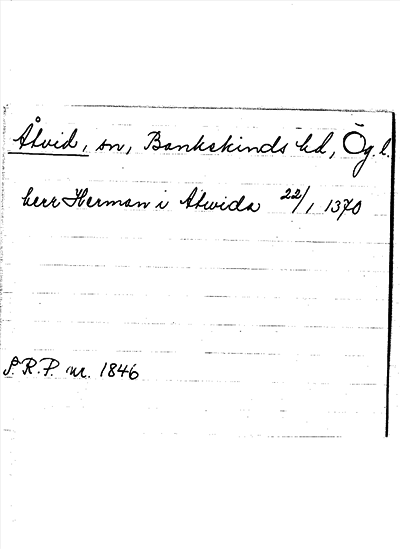 Åtvid, sn, Bankekinds hd, Ög.l.
herr Herman i Atwida 22/1 1370
S.R.P. nr. 1846